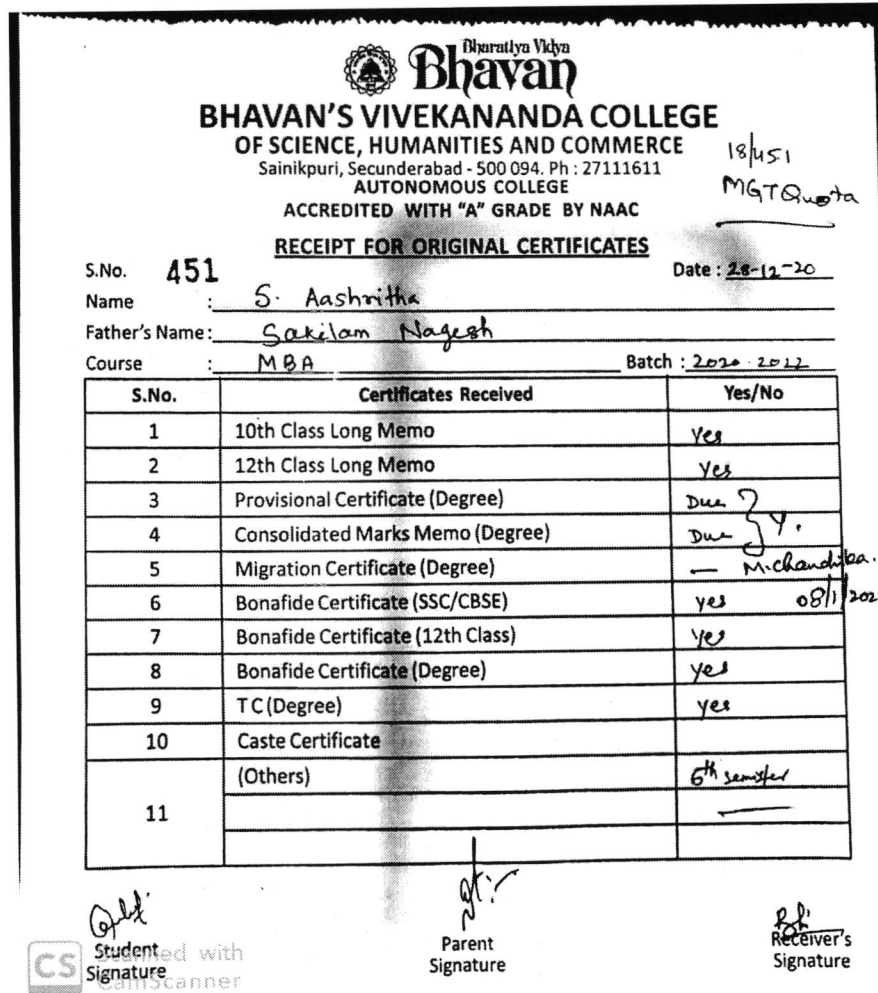 Bharatiya Vidya
Bhavan
BHAVAN'S VIVEKANANDA COLLEGE
OF SCIENCE, HUMANITIES AND COMMERCE
Sainikpuri, Secunderabad - 500 094. Ph : 27111611
AUTONOMOUS COLLEGE
ACCREDITED WITH "A" GRADE BY NAAC
18/451
MGT Quota
RECEIPT FOR ORIGINAL CERTIFICATES
S.No. 451 Date : 28-12-20
Name : S. Aashritha
Father's Name : Sakilam Nagesh
Course : MBA Batch : 2020-2022
S.No. Certificates Received Yes/No
1 10th Class Long Memo Yes
2 12th Class Long Memo Yes
3 Provisional Certificate (Degree) Due
4 Consolidated Marks Memo (Degree) Due } Y.
5 Migration Certificate (Degree) — M.chandrika.
6 Bonafide Certificate (SSC/CBSE) yes 08/1/202
7 Bonafide Certificate (12th Class) Yes
8 Bonafide Certificate (Degree) yes
9 T C (Degree) yes
10 Caste Certificate
11 (Others) 6th semester
—
Student Signature
Parent Signature
Receiver's Signature
CS Scanned with CamScanner